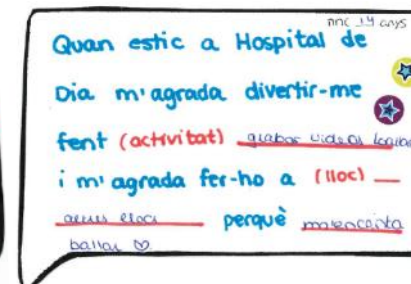 nnc 14 anys
Quan estic a Hospital de
Dia m'agrada divertir-me
fent (activitat) grabar videos
i m'agrada fer-ho a (lloc)
perquè m'encanta
ballar ♡